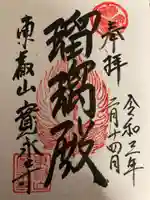 奉拝
令和二年
二月十四日
瑠璃殿
東叡山 寛永寺